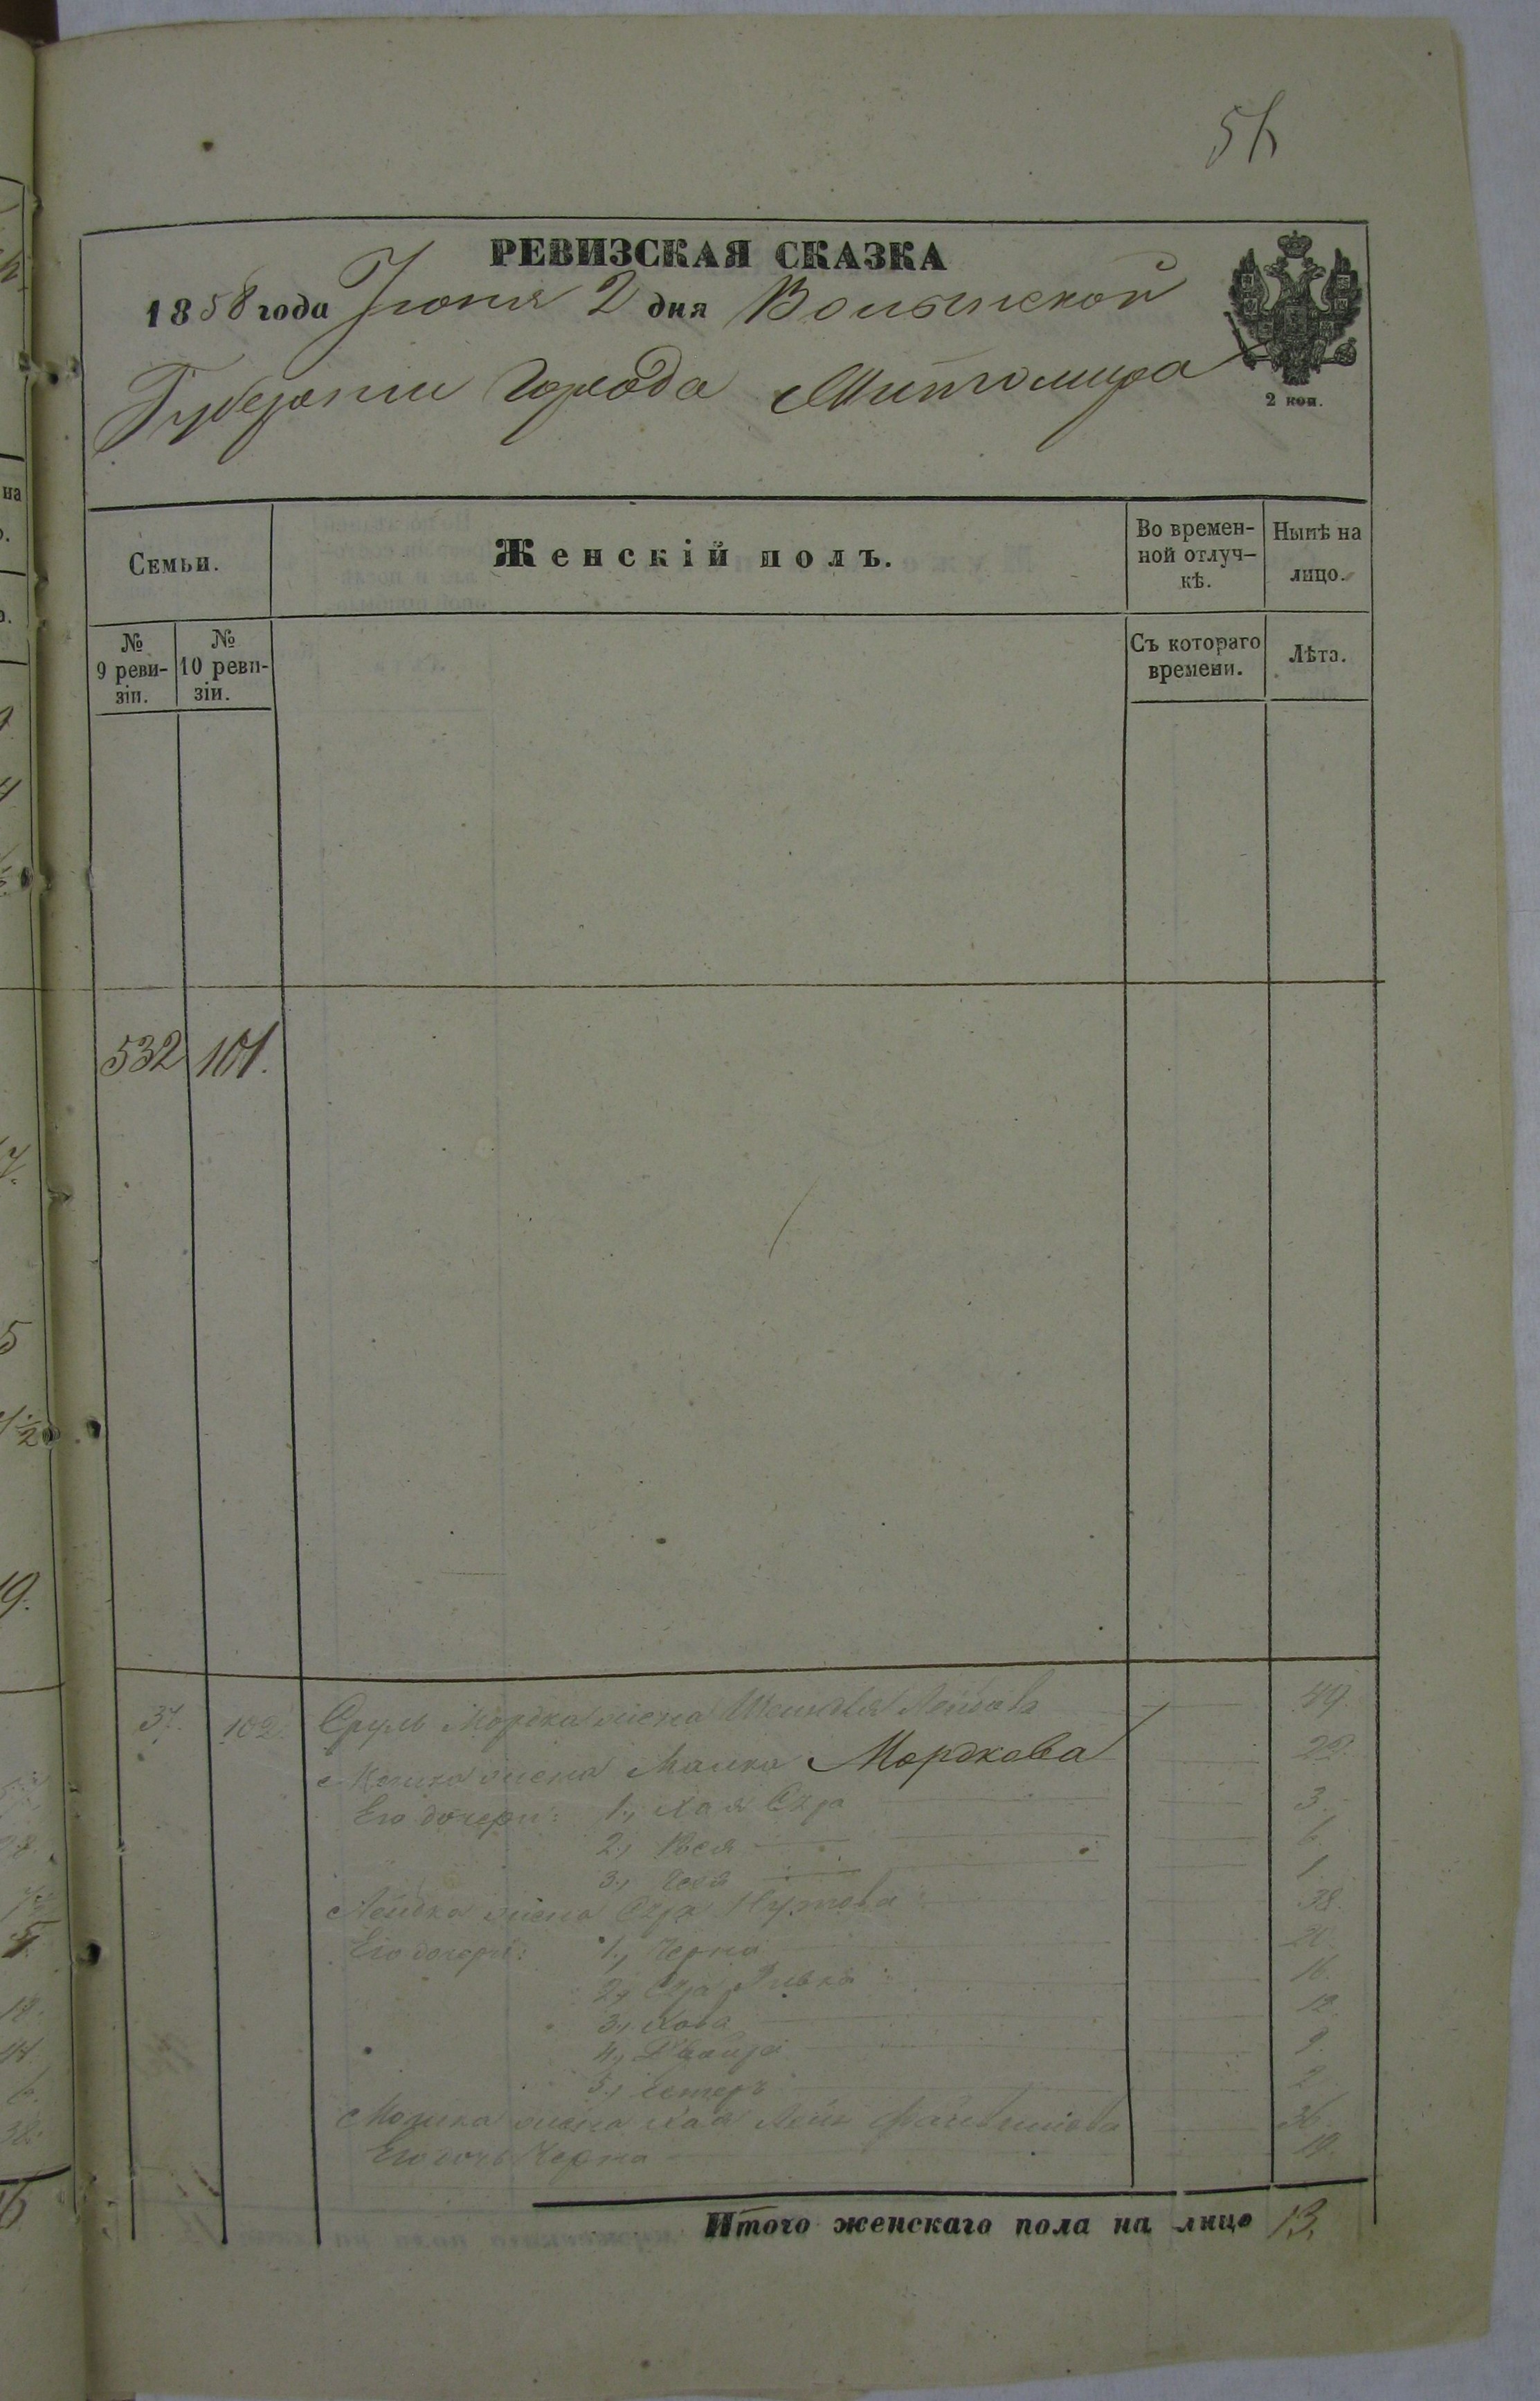 РЕВИЗСКАЯ СКАЗКА
1858 года Іюня 2 дня Волынской
Губерніи города Житомира
2 коп.
Семьи.
Женскій полъ.
Во времен-
ной отлуч-
кѣ.
Нынѣ на
лицо.
№
9 реви-
зіи.
№
10 реви-
зіи.
Съ котораго
времени.
Лѣта.
532 101.
37. 102. Сруль Мордка жена Лейбова 49.
жена Малка Мордкова 29.
Его дочери: 1., Хая Сура 3.
2., Рося 6.
3., 1.
Лейбка жена Сура Нутова 38.
Его дочери: 1., Черна
2., Сура Ривка 16.
3., Хова 12.
4., 9.
5., Естеръ 2
Мошка жена Хая 36.
Его дочь Черна 19.
Итого женскаго пола на лицо 13.